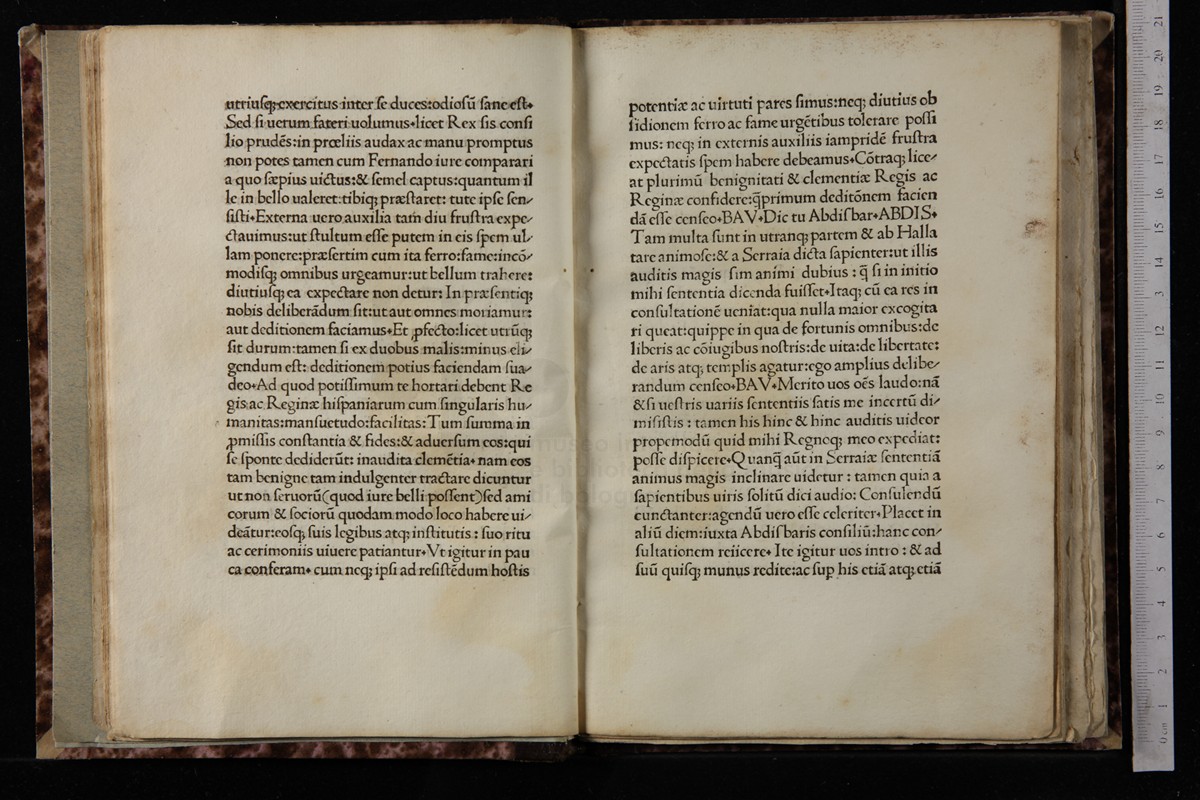 utriusq; exercitus inter se duces: odiosū sane est.
Sed si uerum fateri uolumus. licet Rex sis consi
lio prudēs: in prœliis audax ac manu promptus
non potes tamen cum Fernando iure comparari
a quo sæpius uictus: & semel captus: quantum il
le in bello ualeret: tibiq; præstaret: tute ipse sen/
sisti. Externa uero auxilia tam diu frustra expe/
ctauimus: ut stultum esse putem in eis spem ul/
lam ponere: præsertim cum ita ferro: fame: incō/
modisq; omnibus urgeamur: ut bellum trahere:
diutiusq; ea expectare non detur: In præsentiq;
nobis deliberādum sit: ut aut omnes moriamur:
aut deditionem faciamus. Et ꝓfecto: licet utrūq;
sit durum: tamen si ex duobus malis: minus eli/
gendum est: deditionem potius faciendam sua/
deo. Ad quod potissimum te hortari debent Re
gis ac Reginæ hispaniarum cum singularis hu/
manitas: mansuetudo: facilitas: Tum summa in
ꝓmissis constantia & fides: & aduersum eos: qui
se sponte dediderūt: inaudita clemētia. nam eos
tam benigne tam indulgenter tractare dicuntur
ut non seruorū (quod iure belli possent) sed ami
corum & sociorū quodam modo loco habere ui/
deātur: eosq; suis legibus atq; institutis : suo ritu
ac cerimoniis uiuere patiantur. Vt igitur in pau
ca conferam. cum neq; ipsi ad resistēdum hostis
potentiæ ac uirtuti pares simus: neq; diutius ob
sidionem ferro ac fame urgētibus tolerare possi
mus: neq; in externis auxiliis iampridē frustra
expectatis spem habere debeamus. Cōtraq; lice/
at plurimū benignitati & clementiæ Regis ac
Reginæ confidere: q̄primum deditōnem facien
dā esse censeo. BAV. Dic tu Abdisbar. ABDIS.
Tam multa sunt in utranq; partem & ab Halla
tare animose: & a Serraia dicta sapienter: ut illis
auditis magis sim animi dubius : q̄ si in initio
mihi sententia dicenda fuisset. Itaq; cū ea res in
consultationē ueniat: qua nulla maior excogita
ri queat: quippe in qua de fortunis omnibus: de
liberis ac cōiugibus nostris: de uita: de libertate:
de aris atq; templis agatur: ego amplius delibe/
randum censeo. BAV. Merito uos oēs laudo: nā
& si uestris uariis sententiis satis me incertū di/
misistis : tamen his hinc & hinc auditis uideor
propemodū quid mihi Regnoq; meo expediat:
posse dispicere. Quanq̄ aūt in Serraiæ sententiā
animus magis inclinare uidetur : tamen quia a
sapientibus uiris solitū dici audio: Consulendū
cunctanter: agendū uero esse celeriter. Placet in
aliū diem: iuxta Abdisbaris consiliū: hanc con/
sultationem reiicere. Ite igitur uos intro : & ad
suū quisq; munus redite: ac sup his etiā atq; etiā